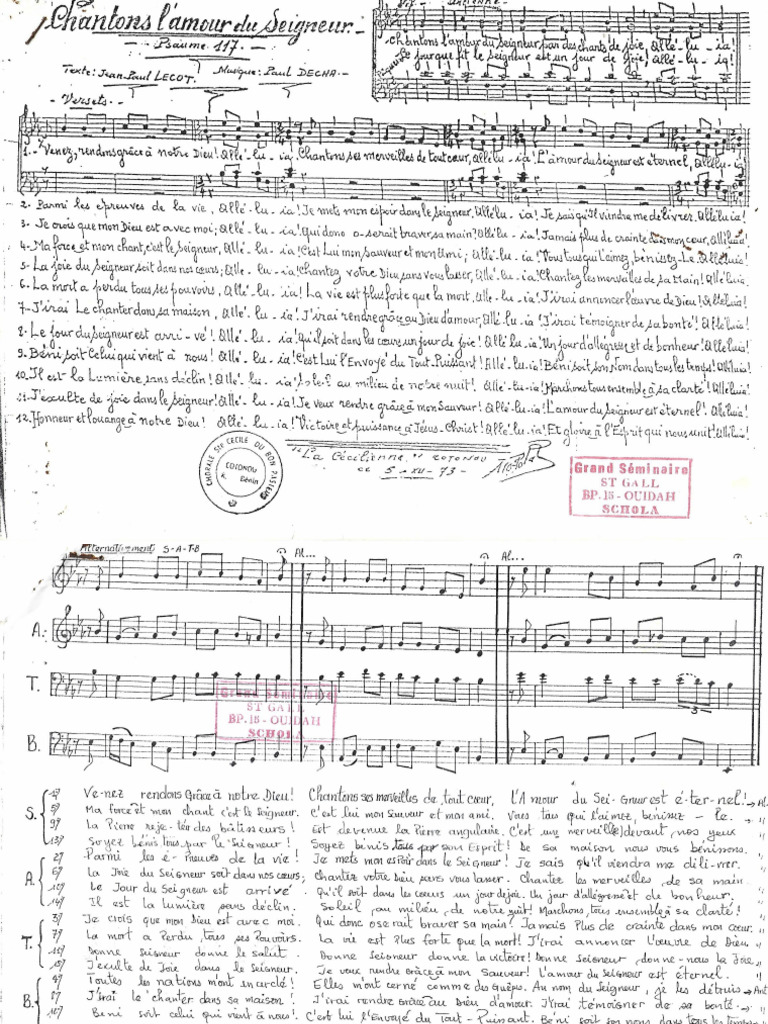 Chantons l'amour du Seigneur.
Psaume 117.
Texte: Jean-Paul LECOT. Musique: Paul DECHA.
Chantons l'amour du Seigneur par des chants de joie, Allé-lu-ia!
Le jour que fit le Seigneur est un jour de joie! Allé-lu-ia!
Versets.
1. Venez, rendons grâce à notre Dieu! Allé-lu-ia! Chantons ses merveilles de tout cœur, allé lu-ia! L'amour du Seigneur est éternel, Alléluia!
2. Parmi les épreuves de la vie, Allé-lu-ia! Je mets mon espoir dans le Seigneur, Allé lu-ia! Je sais qu'Il viendra me délivrer, Allé lu ia!
3. Je crois que mon Dieu est avec moi; Allé-lu-ia! Qui donc o-serait braver sa main? Allé lu-ia! Jamais plus de crainte dans mon cœur, Alléluia
4. Ma force et mon chant, c'est le Seigneur, Allé-lu-ia! C'est Lui mon Sauveur et mon Ami; Allé-lu-ia! Vous tous qui L'aimez, bénissez-Le. Alléluia!
5. La joie du Seigneur soit dans nos cœurs; Allé-lu-ia! Chantez votre Dieu sans vous lasser, Allé-lu-ia! Chantez les merveilles de sa Main! Alléluia.
6. La mort a perdu tous ses pouvoirs, Allé-lu-ia! La vie est plus forte que la mort, Allé-lu-ia! J'irai annoncer l'œuvre de Dieu! Alléluia!
7. J'irai Le chanter dans sa maison, Allé-lu-ia! J'irai rendre grâce au Dieu d'amour, Allé-lu-ia! J'irai témoigner de sa bonté! Alléluia!
8. Le jour du Seigneur est arri-vé! Allé-lu-ia! Qu'il soit dans les cœurs un jour de joie! Allé-lu-ia! Un jour d'allégresse et de bonheur! Alléluia!
9. Béni soit Celui qui vient à nous! Allé-lu-ia! C'est Lui l'Envoyé du Tout-Puissant! Allé-lu-ia! Béni soit son Nom dans tous les temps! Alléluia!
10. Il est la Lumière sans déclin! Allé-lu-ia! Soleil au milieu de notre nuit! Allé-lu-ia! Marchons tous ensemble à sa clarté! Alléluia!
11. J'exulte de joie dans le Seigneur! Allé-lu-ia! Je veux rendre grâce à mon Sauveur! Allé-lu-ia! L'amour du Seigneur est éternel! Alléluia!
12. Honneur et louange à notre Dieu! Allé-lu-ia! Victoire et puissance à Jésus-Christ! Allé-lu-ia! Et gloire à l'Esprit qui nous unit! Alléluia!
"La Cécilienne" COTONOU
ce 5-XII-73
CHORALE Ste CECILE DU BON PASTEUR
COTONOU
Bénin
Grand Séminaire
ST GALL
BP. 15 - OUIDAH
SCHOLA
Alternativement S-A-T-B Al... Al...
A:
T.
B.
Grand Séminaire
ST GALL
BP. 15 - OUIDAH
SCHOLA
S. 1º/ Ve-nez rendons Grâce à notre Dieu! Chantons ses merveilles de tout cœur, L'Amour du Sei-Gneur est é-ter-nel!
5º/ Ma force et mon chant c'est le Seigneur. C'est lui mon Sauveur et mon ami, Vous tous qui l'aimez, bénissez-le.
9º/ La Pierre reje-tée des bâtisseurs! Est devenue la Pierre angulaire. C'est une merveille devant nos yeux
13º/ Soyez bénis tous par le Seigneur! Soyez bénis tous par son Esprit! De sa maison nous vous bénissons.
A. 2º/ Parmi les é-preuves de la vie! Je mets mon espoir dans le Seigneur! Je sais qu'il viendra me déli-vrer.
6º/ La Joie du Seigneur soit dans nos cœurs; Chantez votre Dieu sans vous lasser. Chantez les merveilles de sa main.
10º/ Le Jour du Seigneur est arrivé. Qu'il soit dans les cœurs un jour de joie. Un jour d'allégresse et de bonheur.
14º/ Il est la lumière sans déclin. Soleil au milieu de notre nuit! Marchons tous ensemble à sa clarté!
T. 3º/ Je crois que mon Dieu est avec moi. Qui donc oserait braver sa main? Jamais Plus de crainte dans mon cœur.
7º/ La mort a Perdu tous ses Pouvoirs. La vie est Plus forte que la mort! J'irai annoncer l'œuvre de Dieu
11º/ Donne Seigneur donne le salut. Donne Seigneur donne la victoire! Donne Seigneur, donne-nous la Joie
15º/ J'exulte de Joie dans le Seigneur. Je veux rendre Grâce à mon Sauveur! L'amour du Seigneur est éternel.
B. 4º/ Toutes les nations m'ont encerclé! Elles m'ont cerné comme des Guêpes. Au nom du Seigneur, je les détruis
8º/ J'irai le chanter dans sa maison! J'irai rendre Grâce au Dieu d'amour. J'irai témoigner de sa bonté.
12º/ Béni soit celui qui vient à nous! C'est lui l'Envoyé du Tout-Puissant. Béni soit son nom dans tous les temps